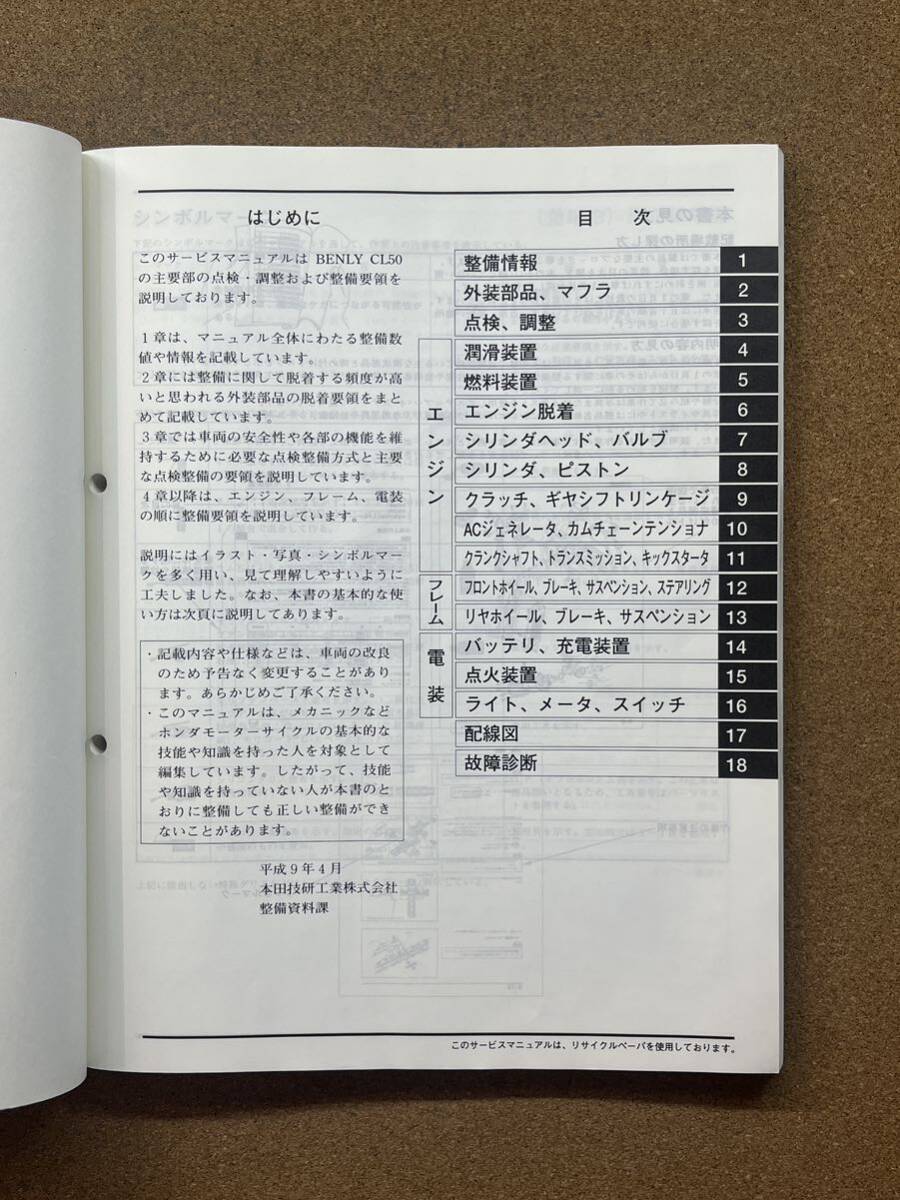 はじめに
このサービスマニュアルは BENLY CL50
の主要部の点検・調整および整備要領を
説明しております。
1章は、マニュアル全体にわたる整備数
値や情報を記載しています。
2章には整備に関して脱着する頻度が高
いと思われる外装部品の脱着要領をまと
めて記載しています。
3章では車両の安全性や各部の機能を維
持するために必要な点検整備方式と主要
な点検整備の要領を説明しています。
4章以降は、エンジン、フレーム、電装
の順に整備要領を説明しています。
説明にはイラスト・写真・シンボルマー
クを多く用い、見て理解しやすいように
工夫しました。なお、本書の基本的な使
い方は次頁に説明してあります。
・記載内容や仕様などは、車両の改良
のため予告なく変更することがあり
ます。あらかじめご了承ください。
・このマニュアルは、メカニックなど
ホンダモーターサイクルの基本的な
技能や知識を持った人を対象として
編集しています。したがって、技能
や知識を持っていない人が本書のと
おりに整備しても正しい整備ができ
ないことがあります。
平成9年4月
本田技研工業株式会社
整備資料課
目 次
整備情報 1
外装部品、マフラ 2
点検、調整 3
エンジン
潤滑装置 4
燃料装置 5
エンジン脱着 6
シリンダヘッド、バルブ 7
シリンダ、ピストン 8
クラッチ、ギヤシフトリンケージ 9
ACジェネレータ、カムチェーンテンショナ 10
クランクシャフト、トランスミッション、キックスタータ 11
フレーム
フロントホイール、ブレーキ、サスペンション、ステアリング 12
リヤホイール、ブレーキ、サスペンション 13
電装
バッテリ、充電装置 14
点火装置 15
ライト、メータ、スイッチ 16
配線図 17
故障診断 18
このサービスマニュアルは、リサイクルペーパを使用しております。